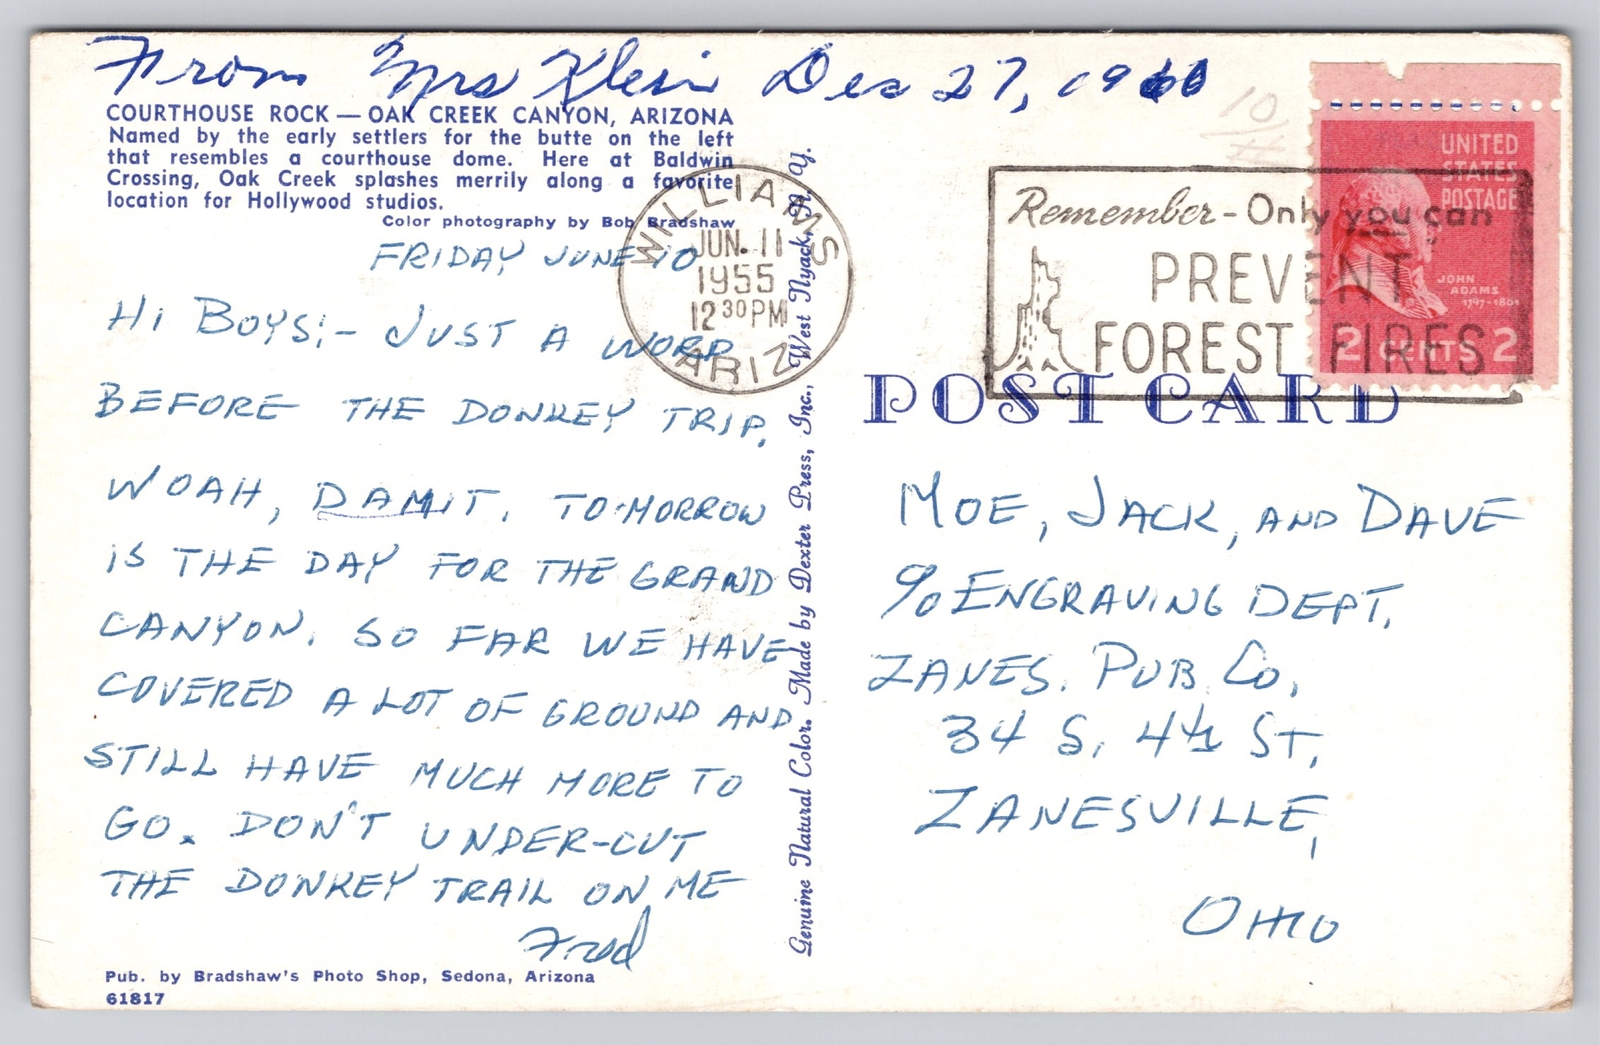 From Mrs Klein Dec 27, 1960
COURTHOUSE ROCK — OAK CREEK CANYON, ARIZONA
Named by the early settlers for the butte on the left
that resembles a courthouse dome. Here at Baldwin
Crossing, Oak Creek splashes merrily along a favorite
location for Hollywood studios.
Color photography by Bob Bradshaw
FRIDAY JUNE 10
HI BOYS;- JUST A WORD
BEFORE THE DONKEY TRIP.
WOAH, DAMIT. TO-MORROW
IS THE DAY FOR THE GRAND
CANYON. SO FAR WE HAVE
COVERED A LOT OF GROUND AND
STILL HAVE MUCH MORE TO
GO. DON'T UNDER-CUT
THE DONKEY TRAIL ON ME
Fred
Pub. by Bradshaw's Photo Shop, Sedona, Arizona
61817
Genuine Natural Color. Made by Dexter Press, Inc., West Nyack, N. Y.
WILLIAMS
JUN. 11
1955
12 30 PM
ARIZ
Remember - Only you can
PREVENT
FOREST FIRES
UNITED
STATES
POSTAGE
JOHN
ADAMS
1797-1801
2 CENTS 2
POST CARD
MOE, JACK, AND DAVE
% ENGRAVING DEPT.
ZANES. PUB. CO.
34 S. 4th ST.
ZANESVILLE,
OHIO